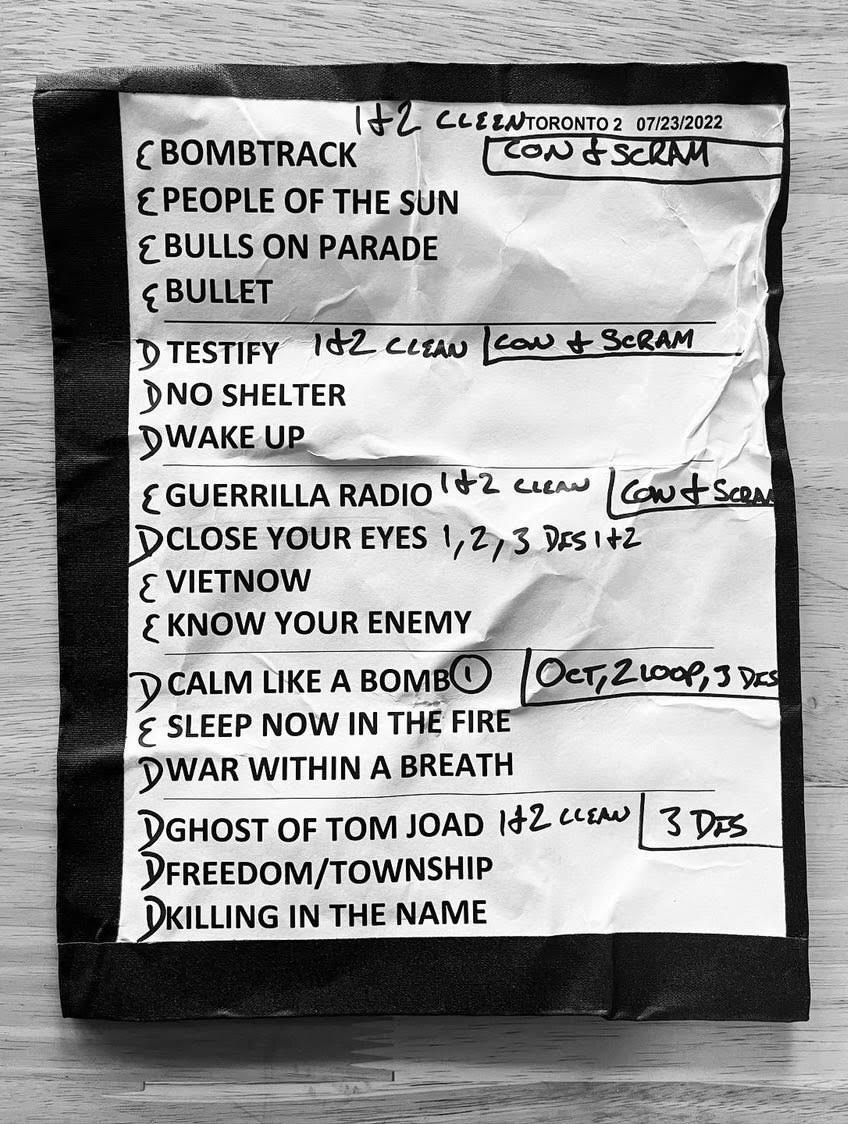 1+2 CLEEN TORONTO 2 07/23/2022
E BOMBTRACK CON + SCRAM
E PEOPLE OF THE SUN
E BULLS ON PARADE
E BULLET
D TESTIFY 1+2 CLEAN CON + SCRAM
D NO SHELTER
D WAKE UP
E GUERRILLA RADIO 1+2 CLEAN CON + SCRAM
D CLOSE YOUR EYES 1, 2, 3 DIS 1+2
E VIETNOW
E KNOW YOUR ENEMY
D CALM LIKE A BOMB 1 OCT, 2 LOOP, 3 DIS
E SLEEP NOW IN THE FIRE
D WAR WITHIN A BREATH
D GHOST OF TOM JOAD 1+2 CLEAN 3 DIS
D FREEDOM/TOWNSHIP
D KILLING IN THE NAME